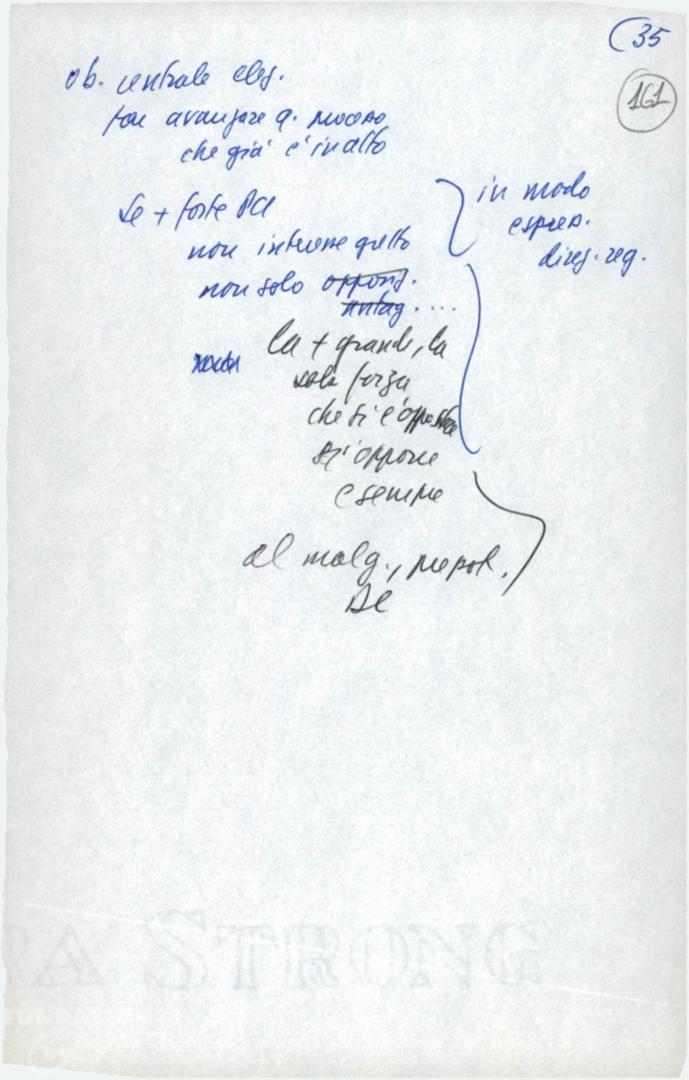 (35
161
ob. centrale elez.
far avanzare q. processo
che già è in atto
Se + forte PCI
in modo
espres.
direg. reg.
non interesse gretto
non solo oppos.
antag. ....
la + grande, la
sola forza
che si è opposta
si oppone
e sempre
al malg., prepot.
DC
A STRONG
FONDAZI